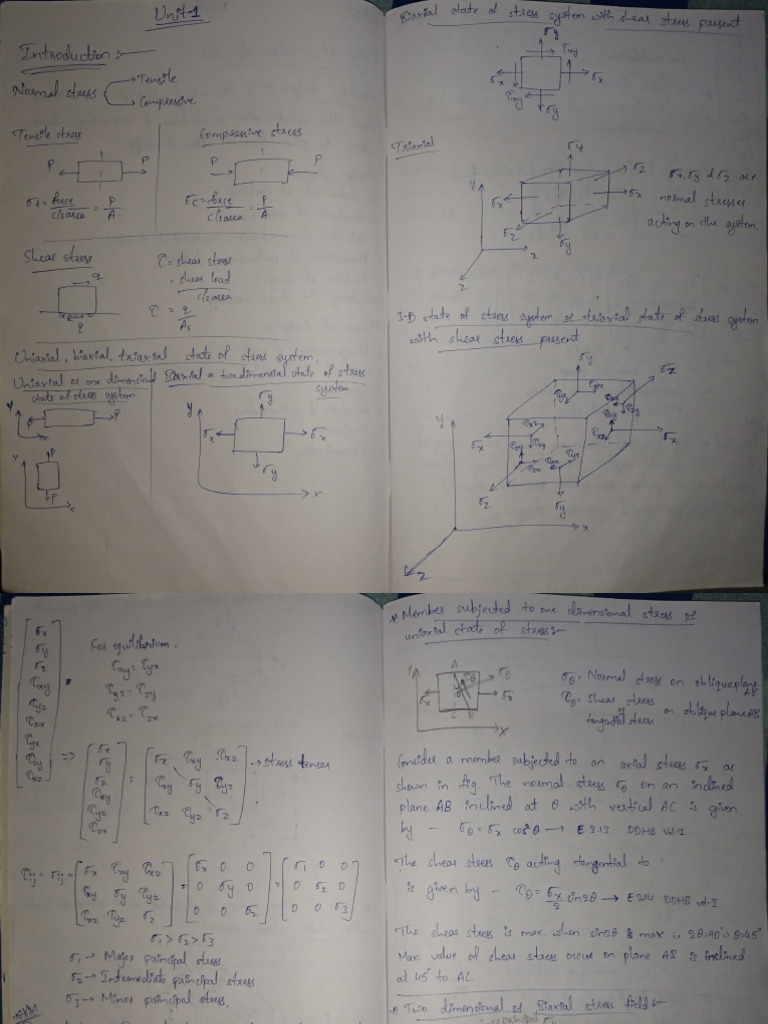 Unit-1
Introduction:-
Normal stress
→ Tensile
→ Compressive
Tensile stress
P P
σt = force/c/s area = P/A
Compressive stress
P P
σc = force/c/s area = P/A
Shear stress
q
q
τ = shear stress
= shear load/c/s area
τ = q/As
Uniaxial, biaxial, triaxial state of stress system.
Uniaxial or one dimensional
state of stress system
y P P x
y P P x
Biaxial or two dimensional state of stress
system
y σy
σx σx
σy
x
Biaxial state of stress system with shear stress present
σy
τxy
σx σx
τxy σy
Triaxial
σy
y σz
σx σx
σz σy
x
z
σx, σy & σz are
normal stresses
acting on the system.
3-D state of stress system or triaxial state of stress system
with shear stress present
σy
σz
y
σx σx
σz
σy
x
z
σx
σy
σz
τxy
τyz
τzx
τyx
τxz
For equilibrium,
τxy = τyx
τyz = τzy
τxz = τzx
⇒ [σx σy σz τxy τyz τzx] =
[σx τxy τxz
τxy σy τyz
τxz τyz σz] → stress tensor
τij = σij = [σx τxy τxz
τxy σy τyz
τxz τyz σz] = [σx 0 0
0 σy 0
0 0 σz] = [σ1 0 0
0 σ2 0
0 0 σ3]
σ1 > σ2 > σ3
σ1 → Major principal stress
σ2 → Intermediate principal stress
σ3 → Minor principal stress.
* Member subjected to one dimensional stress or
uniaxial state of stress:-
y A σθ
τθ
σx θ σx
C B
x
σθ = Normal stress on oblique plane AB
τθ = Shear stress or tangential stress on oblique plane AB
Consider a member subjected to an axial stress σx as
shown in fig. The normal stress σθ on an inclined
plane AB inclined at θ with vertical AC is given
by - σθ = σx cos²θ → E 2.13 DDHB Vol-I
The shear stress τθ acting tangential to
is given by - τθ = σx/2 sin2θ → E 2.14 DDHB vol-I
The shear stress is max. when sin2θ is max i.e 2θ=90° θ=45°
Max. value of shear stress occurs on plane AB is inclined
at 45° to AC.
* Two dimensional or Biaxial stress field:-